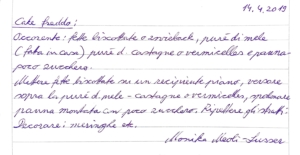 14.4.2019
Cake freddo:
Occorente: fette biscottate o zwieback, purè di mele
(fatta in casa) purè d. castagne o vermicelles e panna
poco zucchero.
Mettere fette biscottate su un recipiente piano, versare
sopra la purè d. mele - castagne o vermicelles, spalmare
panna montata con poco zucchero. Ripetere gli strati.
Decorare: meringhe etc.
Monika